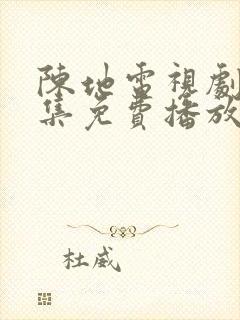 陳地雷視劇
集免費播放
杜威